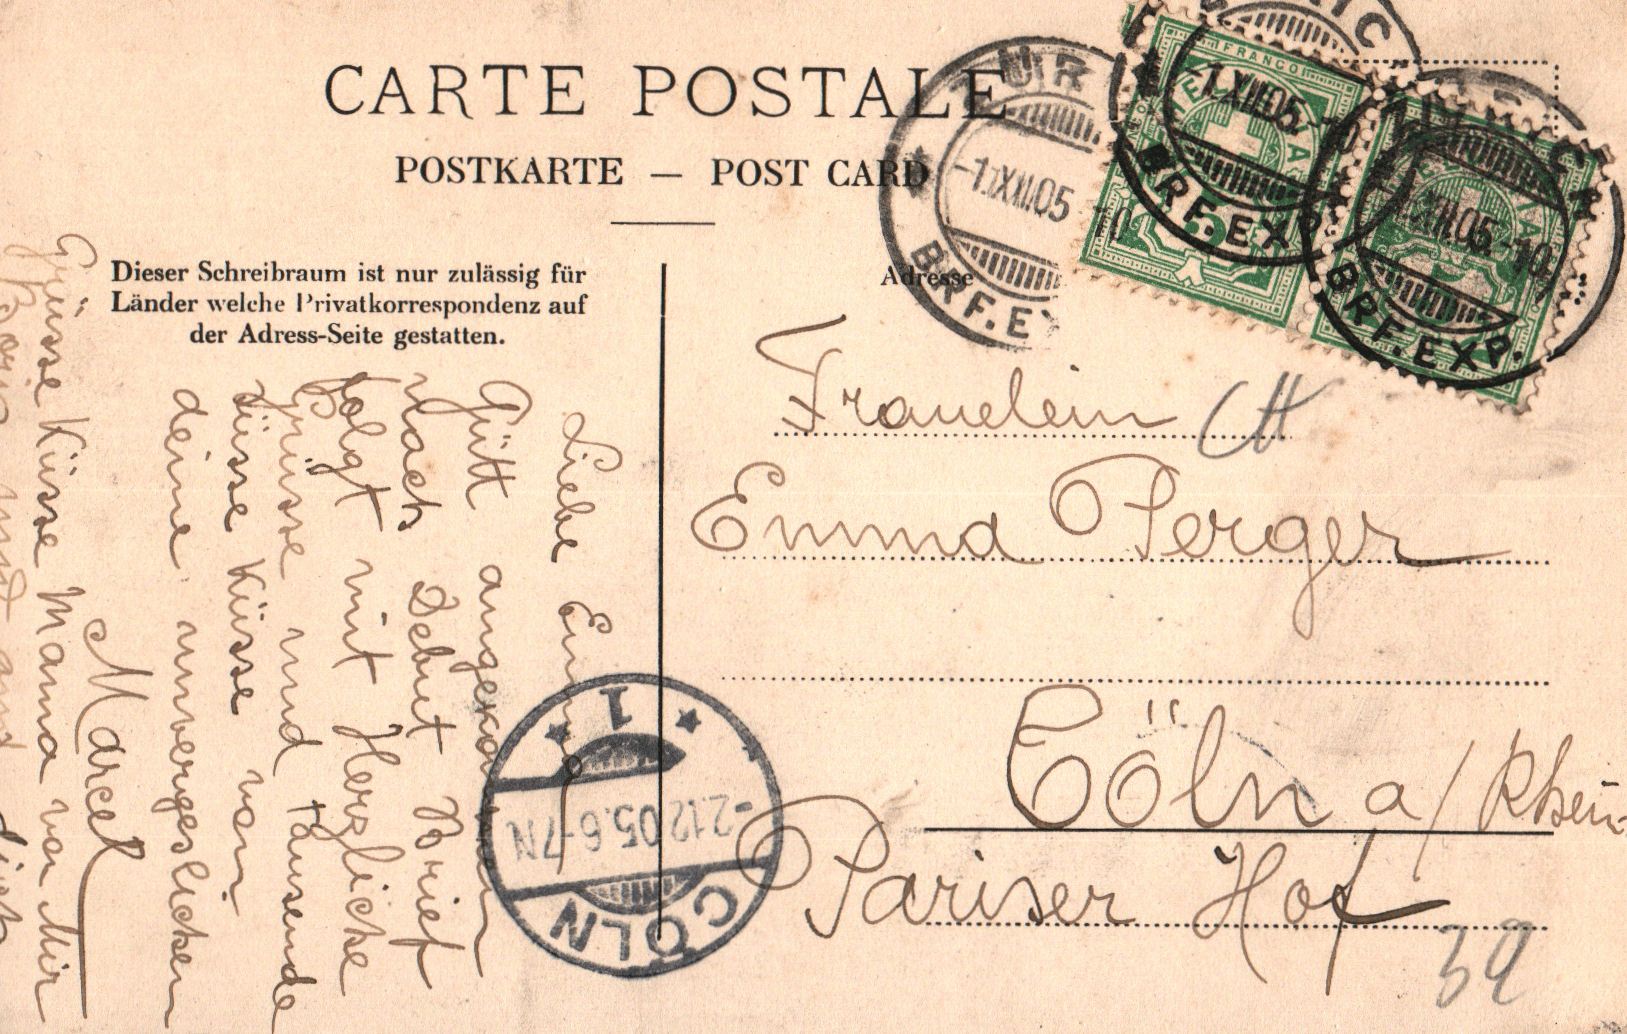 CARTE POSTALE
POSTKARTE — POST CARD
Dieser Schreibraum ist nur zulässig für
Länder welche Privatkorrespondenz auf
der Adress-Seite gestatten.
Adresse
Fräuelein
Emma Perger
Cöln a/Rhein
Pariser Hof
39
Liebe Emma
Gutt angekommen
nach Debut Brief
folgt mit Herzliche
Grüsse und tausende
süsse Küsse von
deine unvergeslichen
Marcel
Grüsse Küsse Mama von Mir
und
ZÜRICH
-1.XII.05.-10
BRF.EXP.
FRANCO
HELVETIA
5
ZÜRICH
-1.XII.05.-10
BRF.EXP.
ZÜRICH
-1.XII.05.-10
BRF.EXP.
CÖLN
-2.12.05.6-7N
* 1 *